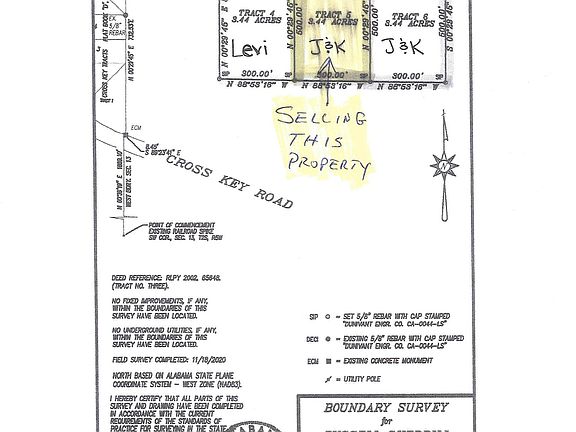 TRACT 4
S.44 ACRES
Levi
300.00'
N 88°53'16" W
TRACT 5
S.44 ACRES
J&K
500.00'
N 88°53'16" W
TRACT 6
S.44 ACRES
J&K
300.00'
N 88°53'16" W
N 00°29'46" E
500.00'
EX.
5/8"
REBAR
CROSS KEY TRACTS
PLAT BOOK "D",
N 00°29'45" E
732.53'
ECM
8.45'
S 89°23'41" E
WEST BDRY. SEC. 13
SELLING
THIS
PROPERTY
CROSS KEY ROAD
POINT OF COMMENCEMENT
EXISTING RAILROAD SPIKE
SW COR., SEC. 13, T2S, R5W
DEED REFERENCE: RLPY 2002, 65648.
(TRACT NO. THREE).
NO FIXED IMPROVEMENTS, IF ANY,
WITHIN THE BOUNDARIES OF THIS
SURVEY HAVE BEEN LOCATED.
NO UNDERGROUND UTILITIES, IF ANY,
WITHIN THE BOUNDARIES OF THIS
SURVEY HAVE BEEN LOCATED.
FIELD SURVEY COMPLETED: 11/18/2020
NORTH BASED ON ALABAMA STATE PLANE
COORDINATE SYSTEM - WEST ZONE (NAD83).
I HEREBY CERTIFY THAT ALL PARTS OF THIS
SURVEY AND DRAWING HAVE BEEN COMPLETED
IN ACCORDANCE WITH THE CURRENT
REQUIREMENTS OF THE STANDARDS OF
PRACTICE FOR SURVEYING IN THE STATE
SIP = SET 5/8" REBAR WITH CAP STAMPED
"DUNIVANT ENGR. CO. CA-0044-LS"
DECI = EXISTING 5/8" REBAR WITH CAP STAMPED
"DUNIVANT ENGR. CO. CA-0044-LS"
ECM = EXISTING CONCRETE MONUMENT
= UTILITY POLE
BOUNDARY SURVEY
for